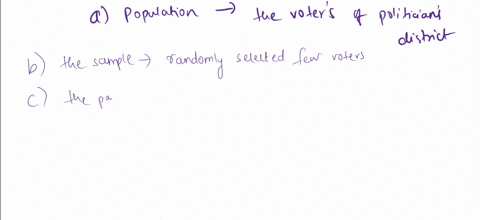 a) Population → the voter's of politician's
district
b) the sample → randomly selected few voters
c) the pa